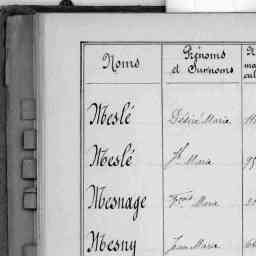 Noms Prénoms
et Surnoms
Meslé Désiré Marie
Meslé Jh Marie
Mesnage Frçois Marie
Mesny Jean Marie